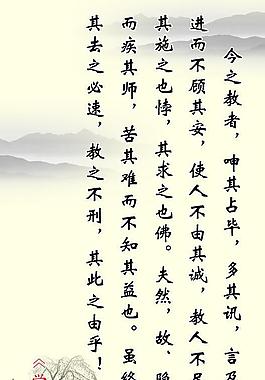 今之教者，呻其占毕，多其讯，言及
进而不顾其安，使人不由其诚，教人不尽
其施之也悖，其求之也佛。夫然，故，隐
而疾其师，苦其难而不知其益也。虽终
其去之必速，教之不刑，其此之由乎！
《学